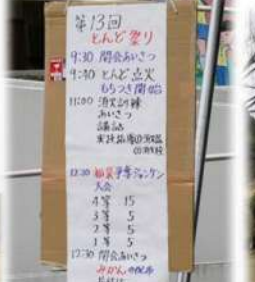 第13回
とんど祭り
9:30 開会あいさつ
9:40 とんど点火
もちつき開始
11:00 消火訓練
あいさつ
講話
争奪ジャンケン
大会
4等 15
3等 5
2等 5
1等 5
12:30 閉会あいさつ
みかん